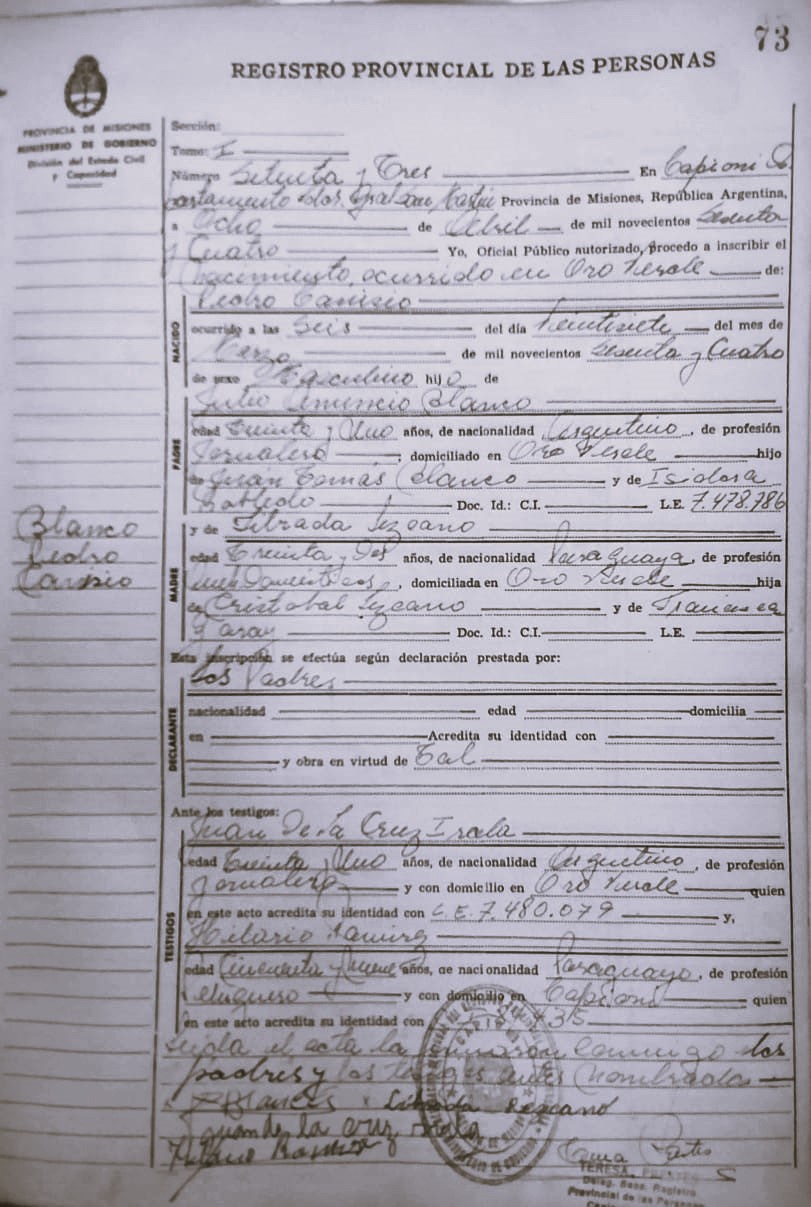 73
REGISTRO PROVINCIAL DE LAS PERSONAS
PROVINCIA DE MISIONES
MINISTERIO DE GOBIERNO
División del Estado Civil
y Capacidad
Sección:
Tomo: I
Número Setenta y Tres En Capiovi
Gral San Martin Provincia de Misiones, República Argentina,
a Ocho de Abril de mil novecientos Sesenta
y Cuatro Yo, Oficial Público autorizado, procedo a inscribir el
Nacimiento, ocurrido en Oro Verde de:
Pedro Canisio
NACIDO
ocurrido a las Seis del día Veintisiete del mes de
Marzo de mil novecientos Sesenta y Cuatro
de sexo Masculino hijo de
Julio Blanco
PADRE
edad Treinta y Uno años, de nacionalidad Argentino, de profesión
Jornalero, domiciliado en Oro Verde hijo
de Juan Tomás Blanco y de Isidora
Robledo Doc. Id.: C.I. L.E. 7.478.786
Blanco
Pedro
Canisio
y de Librada Lezcano
MADRE
edad Treinta y Dos años, de nacionalidad Paraguaya, de profesión
domiciliada en Oro Verde hija
de Cristobal Lezcano y de Francisca
Garay Doc. Id.: C.I. L.E.
Esta inscripción se efectúa según declaración prestada por:
los Padres
DECLARANTE
nacionalidad edad domicilia
en Acredita su identidad con
y obra en virtud de Tal
Ante los testigos:
Juan De La Cruz Irala
TESTIGOS
edad Treinta y Uno años, de nacionalidad Argentino, de profesión
Jornalero y con domicilio en Oro Verde quien
en este acto acredita su identidad con L.E. 7.480.079 y,
Hilario Ramirez
edad Cincuenta y Nueve años, de nacionalidad Paraguayo, de profesión
y con domicilio en Capiovi quien
en este acto acredita su identidad con
Leida el acta la firmaron conmigo los
padres y los testigos antes nombrados
Blanco Librada Lezcano
Juan de la cruz Irala
Ramirez
TERESA
Deleg. Registro
Provincial de las Personas